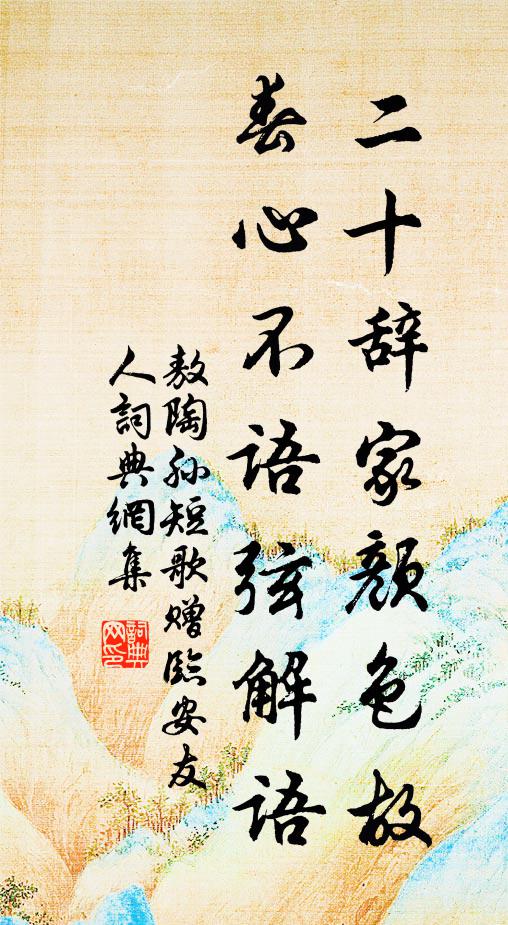 二十辞家颜色故
春心不语弦解语
敖陶孙短歌赠临安友
人词典網集
詞典
网印